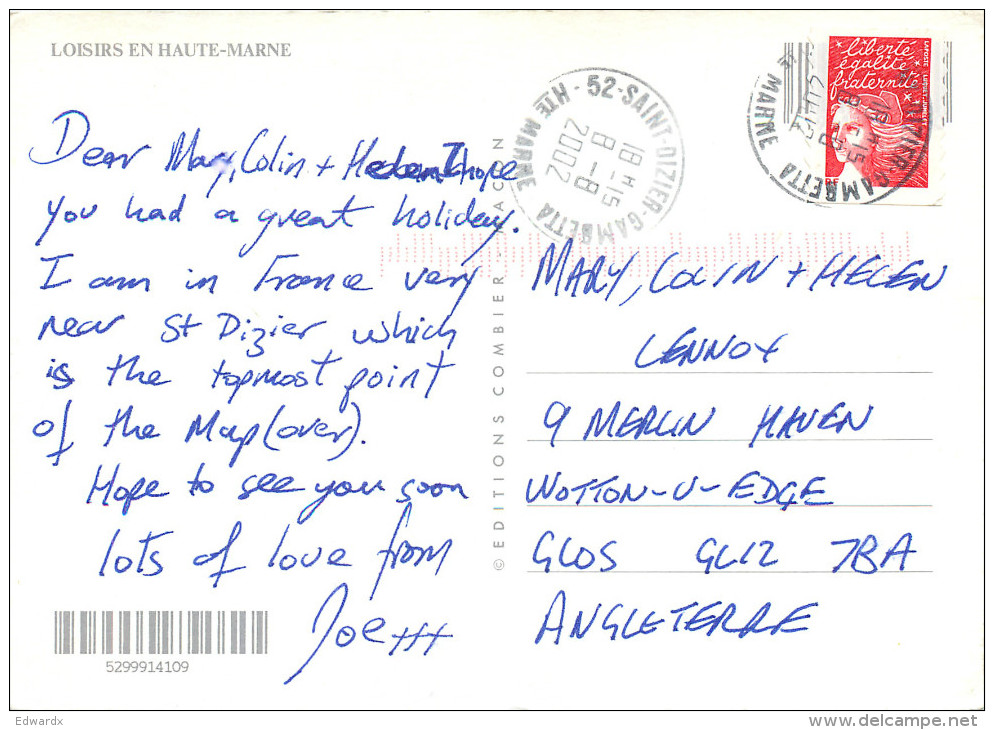 LOISIRS EN HAUTE-MARNE
Dear Mary, Colin + Helen I hope
you had a great holiday.
I am in France very
near St Dizier which
is the topmost point
of the Map (over).
Hope to see you soon
lots of love from
Joe +++
5299914109
© EDITIONS COMBIER - MACON
52-SAINT-DIZIER-GAMBETTA
HTE MARNE
18 H 15
8 -8
2002
liberté
égalité
fraternité
LA POSTE
RF
MARY, COLIN + HELEN
LENNOX
9 MERLIN HAVEN
WOTTON-U-EDGE
GLOS GL12 7BA
ANGLETERRE
Edwardx
delcampe.net